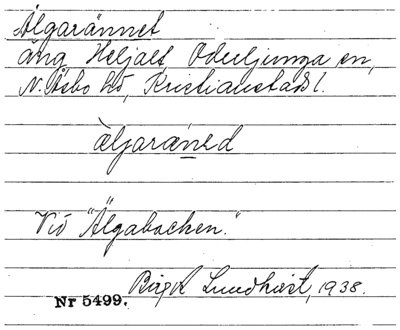 Älgarännet
äng, Heljalt, Oderljunga sn,
N. Åsbo hd, Kristianstads l.
äljaräned
Vid "Älgabacken."
Birger Lundkvist, 1938.
Nr 5499.